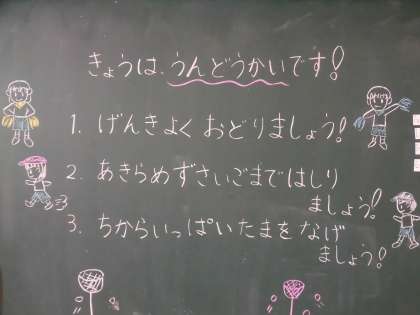 きょうは、うんどうかいです!
1. げんきよく おどりましょう!
2. あきらめずさいごまではしり
ましょう!
3. ちからいっぱいたまをなげ
ましょう!